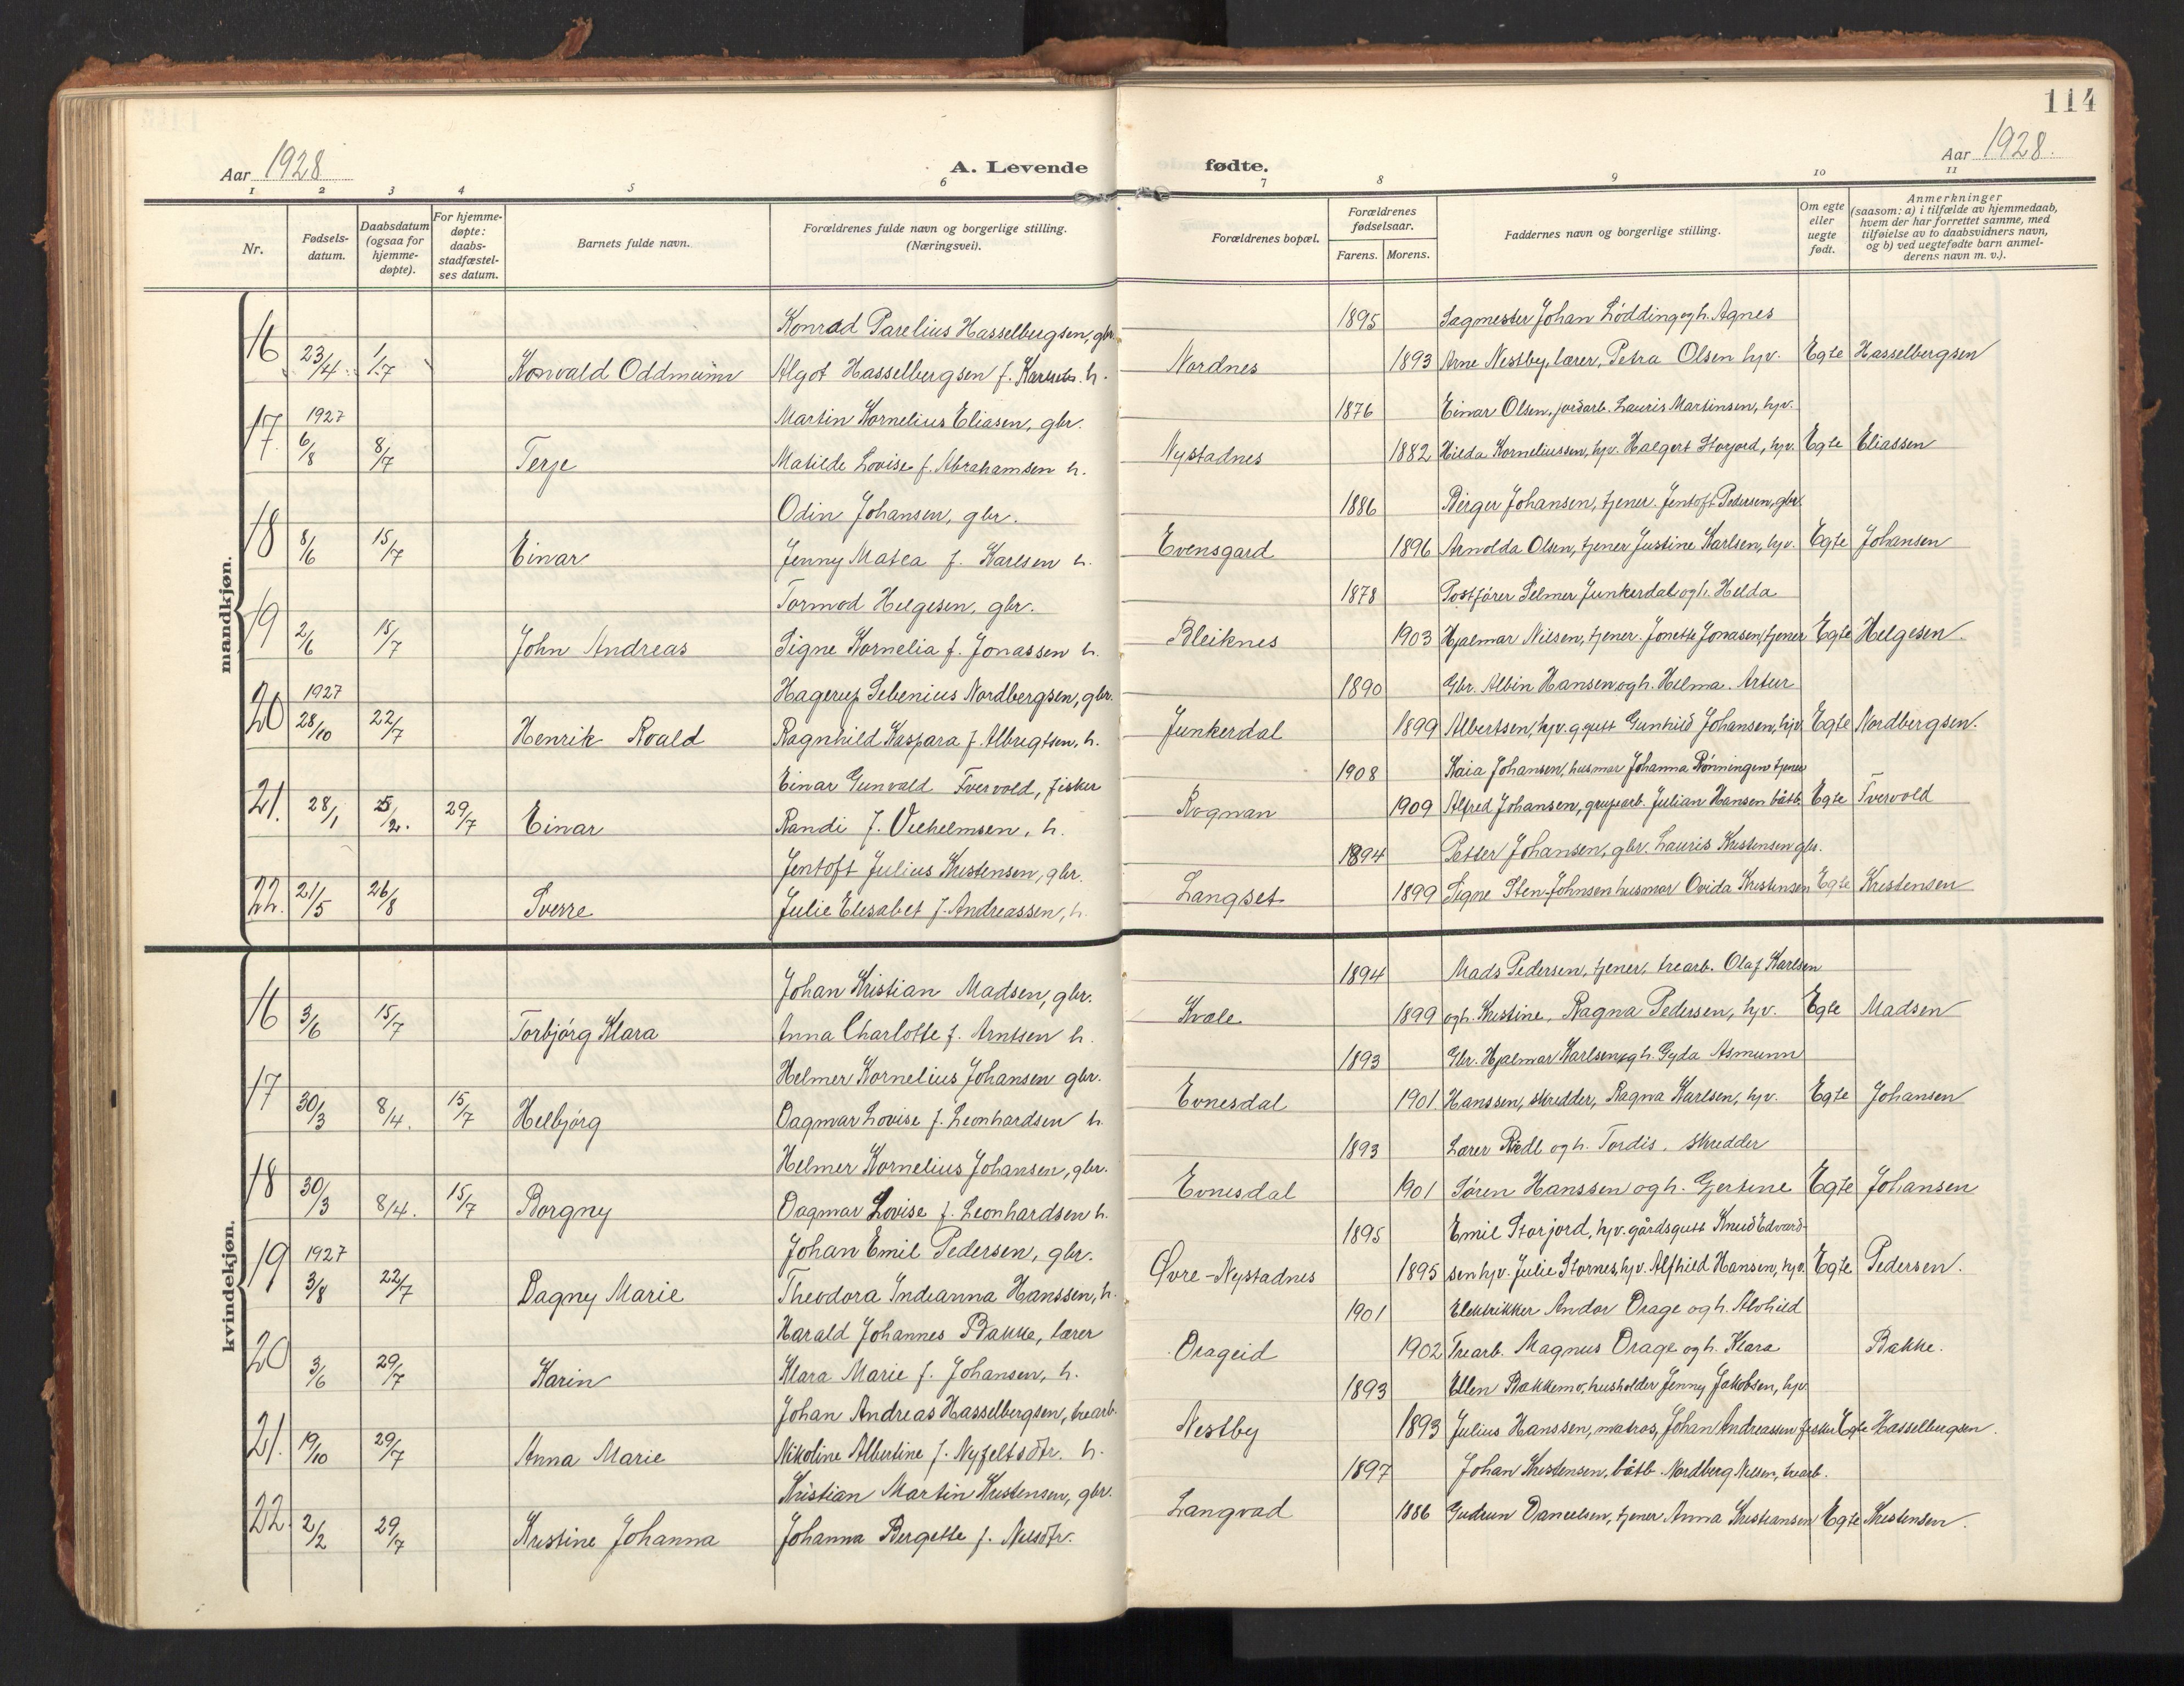 114
Aar 1928
A. Levende
fødte.
Aar 1928.
1 2 3 4 5 6 7 8 9 10 11
Nr.
Fødsels-
datum.
Daabsdatum
(ogsaa for
hjemme-
døpte).
For hjemme-
døpte:
daabs-
stadfæstel-
ses datum.
Barnets fulde navn.
Forældrenes fulde navn og borgerlige stilling.
(Næringsvei).
Forældrenes bopæl.
Forældrenes
fødselsaar.
Farens. Morens.
Faddernes navn og borgerlige stilling.
Om egte
eller
uegte
født.
Anmerkninger
(saasom: a) i tilfælde av hjemmedaab,
hvem der har forrettet samme, med
tilføielse av to daabsvidners navn,
og b) ved uegtefødte barn anmel-
derens navn m. v.).
mandkjøn.
Konrad Parelius Hasselbergsen, gbr. 1895 Sagmester Johan Lödding og h. Agnes
16 23/4 1/7 Konvald Oddmunn Algot Hasselbergsen f. h. Nordnes 1893 Arne Nestby, lærer, Petra Olsen hjv. Egte Hasselbergsen
1927 Martin Kornelius Eliasen, gbr. 1876 Einar Olsen, jordarb. Lauris Martinsen, hjv.
17 6/8 8/7 Terje Matilde Lovise f. Abrahamsen h. Nystadnes 1882 Hilda Korneliussen, hjv. Halgert Storjord, hjv. Egte Eliassen
Odin Johansen, gbr. 1886 Birger Johansen, tjener. Jentoft Pedersen, gbr.
18 8/6 15/7 Einar Jenny Matea f. Karlsen h. Evensgard 1896 Arnolda Olsen, tjener Justine Karlsen, hjv. Egte Johansen
Tormod Helgesen, gbr. 1878 Postfører Selmer Junkerdal og h. Helda
19 2/6 15/7 John Andreas Signe Kornelia f. Jonassen h. Bleiknes 1903 Hjalmar Nilsen, tjener. Jonette Jonasen, tjener Egte Helgesen.
1927 Hagerup Sebenius Nordbergsen, gbr. 1890 Gbr. Albin Hansen og h. Helma. Artur
20 28/10 22/7 Henrik Roald Ragnhild Kaspara f. Albrigtsen, h. Junkerdal 1899 Albertsen, hjv. g.gutt Gunhild Johansen, hjv. Egte Nordbergsen.
Einar Gunvald Tvervold, fisker 1908 Kaia Johansen, husmor Johanna Rønningen tjener
21. 28/1 5/2. 29/7 Einar Randi f. Vilhelmsen, h. Rognan 1909 Alfred Johansen, grubearb. Julian Hansen båtb. Egte Tvervold
Jentoft Julius Kristensen, gbr. 1894 Petter Johansen, gbr. Lauris Kristensen gbr.
22. 21/5 26/8 Sverre Julie Elisabet f. Andreassen, h. Langset 1899 Signe Sten-Johnsen husmor Ovida Kristensen Egte Kristensen
kvindekjøn.
Johan Kristian Madsen, gbr. 1894 Mads Pedersen, tjener, trearb. Olaf Karlsen
16 3/6 15/7 Torbjörg Klara Anna Charlotte f. Arntsen h. Kvæle 1899 og h. Kristine, Ragna Pedersen, hjv. Egte Madsen
Helmer Kornelius Johansen gbr. 1893 Gbr. Hjalmar Karlsen og h. Gyda Asmunn
17 30/3 8/4. 15/7 Helbjörg Dagmar Lovise f. Leonhardsen h. Evnesdal 1901 Hanssen, skredder, Ragna Karlsen, hjv. Egte Johansen
Helmer Kornelius Johansen, gbr. 1893 Lærer Riedl og h. Tordis, skredder
18 30/3 8/4. 15/7 Borgny Dagmar Lovise f. Leonhardsen h. Evnesdal 1901 Søren Hanssen og h. Gjertine Egte Johansen
1927 Johan Emil Pedersen, gbr. 1895 Emil Storjord, hjv. gårdsgutt Knud Edvard-
19 3/8 22/7 Dagny Marie Theodora Indianna Hanssen, h. Øvre-Nystadnes 1895 sen hjv. Julie Stornes, hjv. Alfhild Hansen, hjv. Egte Pedersen.
Harald Johannes Bakke, lærer 1901 Elektrikker Andor Drage og h. Alvhild
20 3/6 29/7 Karin Klara Marie f. Johansen, h. Drageid 1902 Trearb. Magnus Drage og h. Klara Bakke.
Johan Andreas Hasselbergsen, trearb. 1893 Ellen Bakkemo, husholder Jenny Jakobsen, hjv.
21. 19/10 29/7 Anna Marie Nikoline Albertine f. Nyfeltsdtr. h. Nestby 1893 Julius Hanssen, matros, Johan Andreassen fisker Egte Hasselbergsen.
Kristian Martin Kristensen, gbr. 1897 Johan Kristensen, båtb. Nordberg Nilsen, trearb.
22. 2/2 29/7 Kristine Johanna Johanna Bergette f. Nilsdtr. Langvad 1886 Gudrun Danielsen, tjener Anna Kristiansen Egte Kristensen.